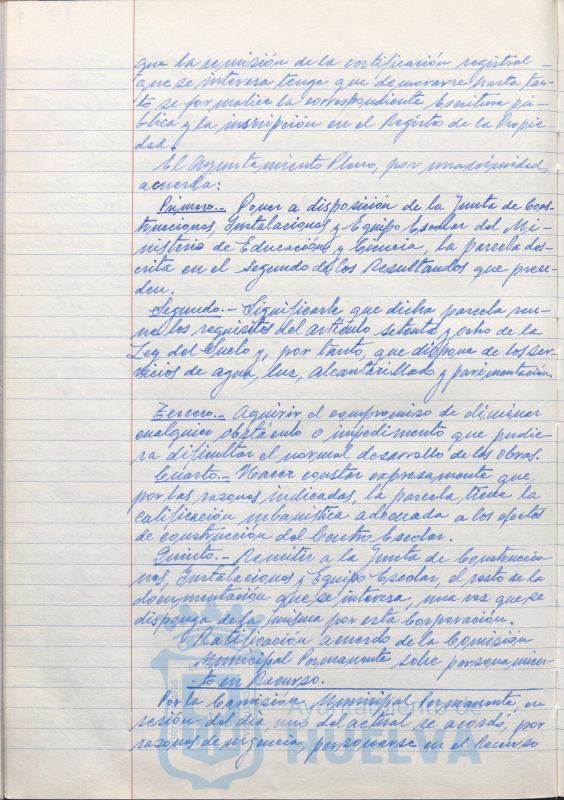 que la remisión de la certificación registral -
que se interesa tenga que demorarse hasta tan-
to se formalice la correspondiente Escritura pú-
blica y la inscripción en el Registro de la Propie-
dad.
El Ayuntamiento Pleno, por unanimidad,
acuerda:
Primero.- Poner a disposición de la Junta de Cons-
trucciones, Instalaciones y Equipo Escolar del Mi-
nisterio de Educación y Ciencia, la parcela des-
crita en el segundo de los Resultandos que prece-
den.
Segundo.- Significarle que dicha parcela reu-
ne los requisitos del artículo setenta y ocho de la
Ley del Suelo y, por tanto, que dispone de los ser-
vicios de agua, luz, alcantarillado y pavimentación.
Tercero.- Aquirir el compromiso de eliminar
cualquier obstáculo o impedimento que pudie-
ra dificultar el normal desarrollo de las obras.
Cuarto.- Hacer constar expresamente que,
por las razones indicadas, la parcela tiene la
calificación urbanística adecuada a los efectos
de construcción del Centro Escolar.
Quinto.- Remitir a la Junta de Construccio-
nes, Instalaciones y Equipo Escolar, el resto de la
documentación que se interesa, una vez que se
disponga de la misma por esta Corporación.
Ratificación acuerdo de la Comisión
Municipal Permanente sobre personamien-
to en Recurso.
Por la Comisión Municipal Permanente, en
sesión del día uno del actual se acordó, por
razones de urgencia, personarse en el Recurso
HUELVA